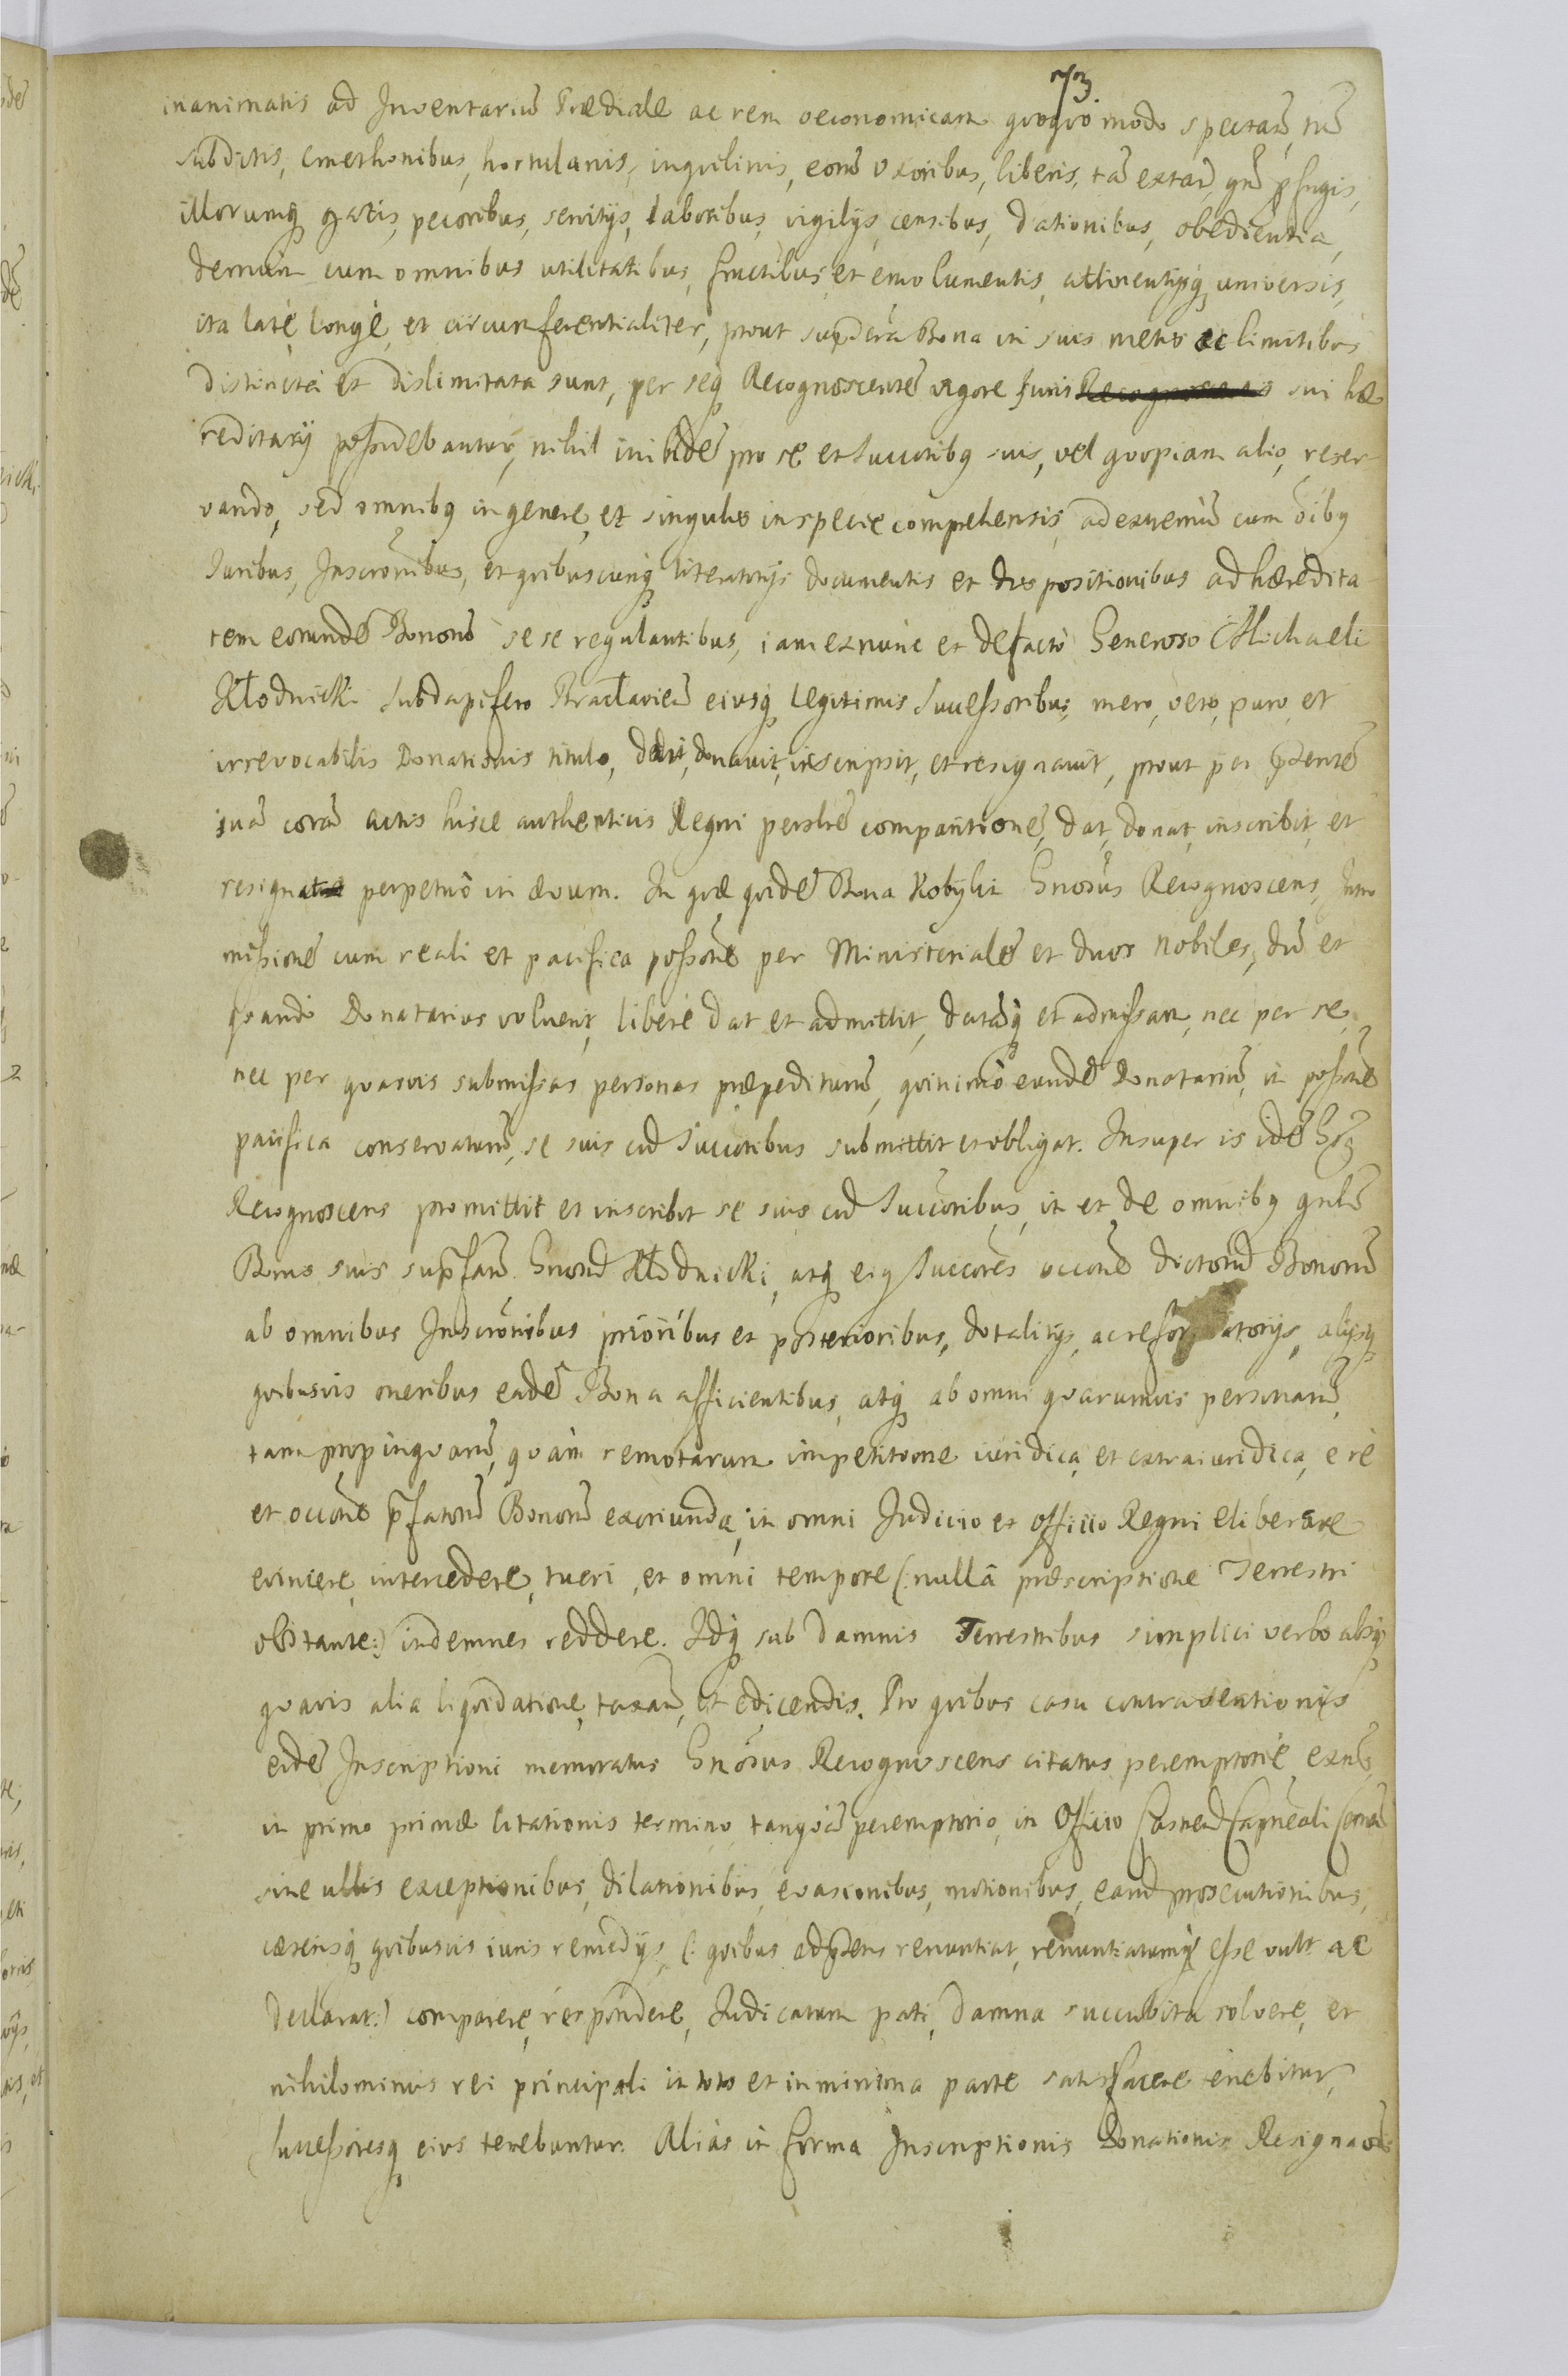 73.
inanimatis ad Inventariũ Prædiale ac rem oeconomicam quoquo modo spectań, tũ
subditis, cmethonibus, hortulanis, inquilinis, eorũ Uxoribus, liberis, tã extań, quã p̱fugis,
illorumq́ gazis, pecoribus, servitijs, laboribus, vigilijs, censibus, dationibus, obedientia,
demum cum omnibus utilitatibus, fructibus, et emolumentis, attinentijsq́ universis,
ita latè, longè, et circumferentialiter, prout supradicta Bona in suis metis ac limitibus
distincta et dislimitata sunt, per seq́ Recognoscentẽ vigore Juris Recognoscentis sui hæ-
reditarij possidebantur, nihil inibidẽ pro se et Succoribq suis, vel quopiam alio, reser-
vando, sed omnibq in genere, et singulis in specie comprehensis, ad extremũ cum oibq
Juribus, Inscrõnibus, et quibuscunq́ literatorijs documentis et dispositionibus ad hæredita-
tem eorundẽ Bonorũ sese regulantibus, iam ex nunc et de facto Generoso Michaeli
Kłodnicki Subdapifero Bracłavień eiusq́ legitimis Successoribus, mero, vero, puro, et
irrevocabilis Donationis titulo, dedit, donavit, inscripsit, et resignavit, prout per p̃ntem
suã corã actis hisce authenticis Regni persĩlẽ comparitionẽ, dat, donat, inscribit, et
resignat perpetuò in ævum. In quæ quidẽ Bona Kobylin Gnõsus Recognoscens, Intro-
missionẽ cum reali et pacifica possõne per Ministerialẽ et duos Nobiles, dũ et
quando Donatarius voluerit, liberè dat et admittit, datãq́ et admissam, nec per se,
nec per quasvis submissas personas præpediturũ, quinimò eundẽ Donatariũ, in possõne
pacifica conservaturũ, se suis cũ Succoribus submittit et obligat. Insuper is idẽ Gñsq
Recognoscens promittit et inscribit se suis cũ Succoribus, in et de omnibq gnĩter
Bonis suis supp̃fatũ Gnosũ Kłodnicki, atq́ eiq Succores occõne dictorũ Bonorũ
ab omnibus Inscrõnibus prioribus et posterioribus, dotalitijs, ac reformatorijs, alijsq́
quibusvis oneribus eadẽ Bona afficientibus, atq́ ab omni quarumvis personarũ,
tam propinquarũ, quàm remotarum impetitione iuridica, et extraiuridica, e re
et occõne p̃fatorũ Bonorũ exoriunda, in omni Judicio et officio Regni eliberare
evincere, intercedere, tueri, et omni tempore (: nullâ præscriptione Terrestri
obstante :) indemnes reddere. Idq́ sub damnis Terrestribus simplici verbo absq́
quavis alia liquidatione, taxań, et edicendis. Pro quibus casu contraventionis
eidẽ Inscriptioni memoratus Gnõsus Recognoscens citatus peremptoriè, extũc,
in primo primæ citationis termino, tanquã peremptorio, in Officio Castreń Capneali Cracoń
sine ullis exceptionibus, dilationibus, evasionibus, motionibus, earũd prosecutionibus,
cæterisq́ quibusvis iuris remedijs, (: quibus ad p̃sens renuntiat, renuntiatumq́ esse vult ac
declarat :) comparere, respondere, Judicatum pati, damna succubita solvere, et
nihilominus rei principali in toto et in minima parte satisfacere tenebitur,
Successoresq́ eius tenebuntur. Alias in forma Inscriptionis Donationis Resignaõis